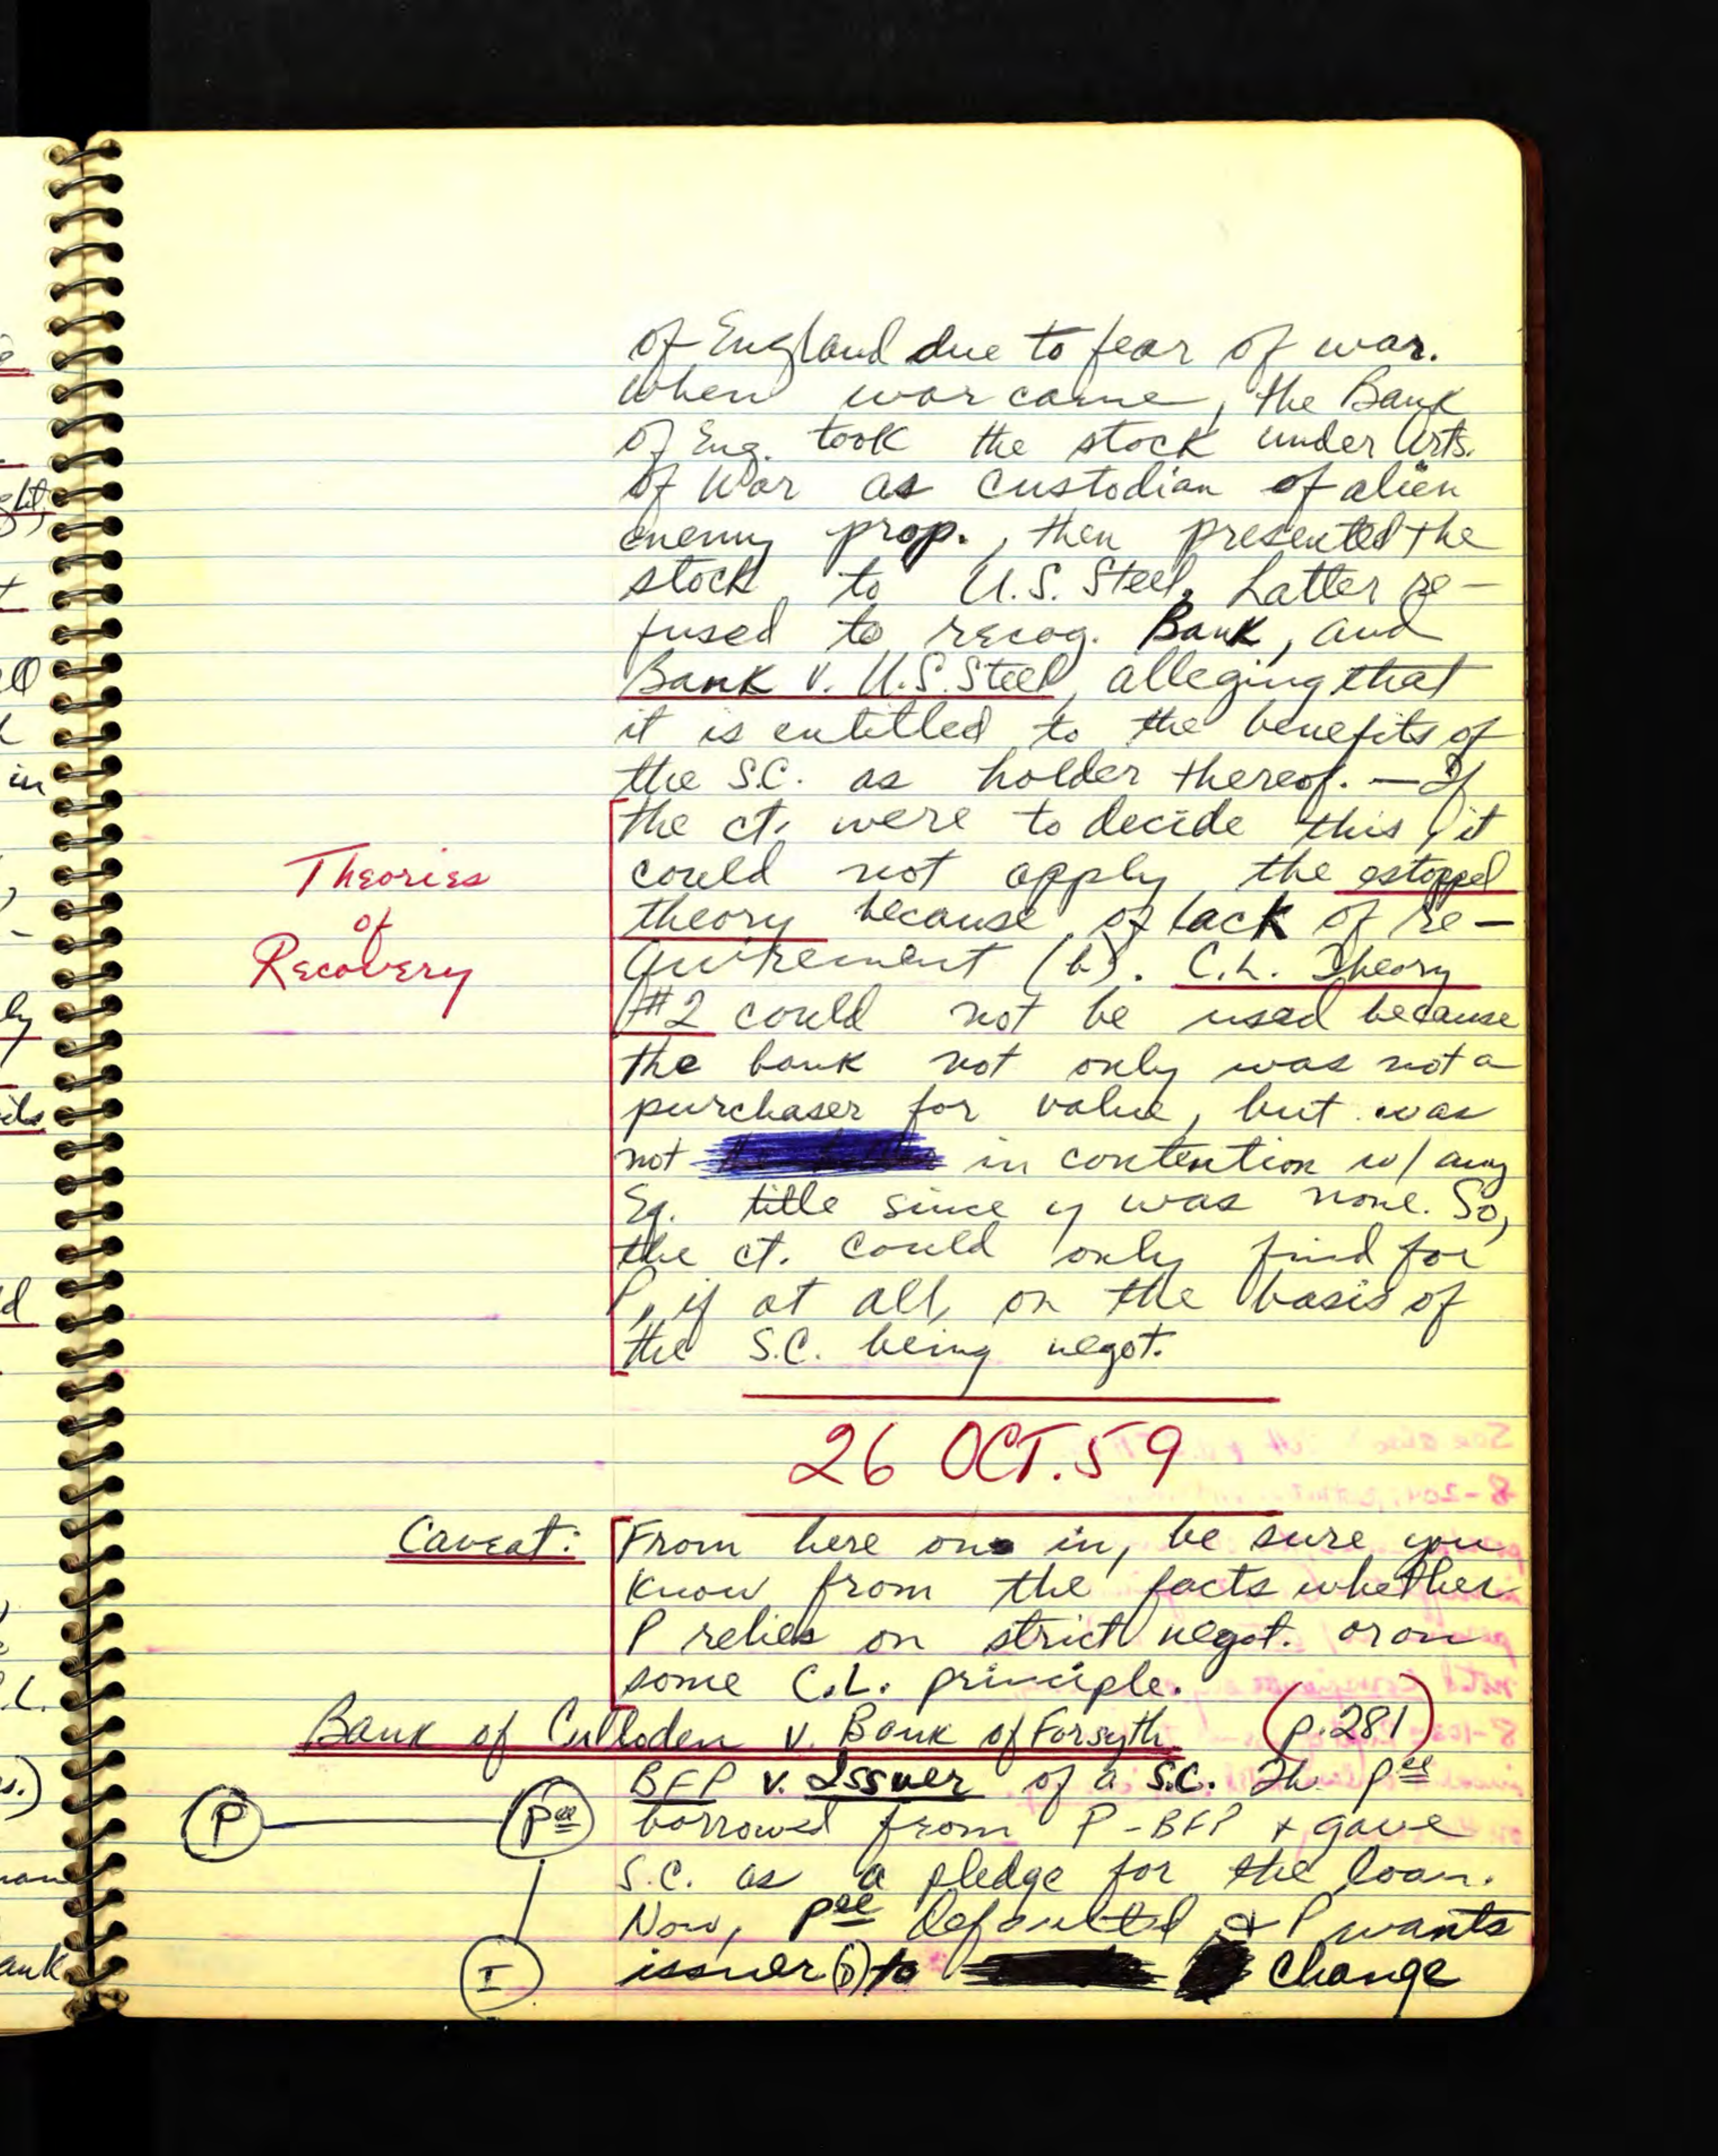 of England due to fear of war.
When war came, the Bank
of Eng. took the stock under Arts.
of War as custodian of alien
enemy prop., then presented the
stock to U.S. Steel. Latter re-
fused to recog. Bank, and
Bank v. U.S. Steel, alleging that
it is entitled to the benefits of
the S.C. as holder thereof. — If
the ct. were to decide this, it
Theories
of
Recovery
could not apply the estoppel
theory because of lack of re-
quirement (b). C.L. Theory
#2 could not be used because
the bank not only was not a
purchaser for value, but was
not in contention w/ any
Eq. title since y was none. So,
the ct. could only find for
P, if at all, on the basis of
the S.C. being negot.
26 OCT. 59
Caveat: From here on in, be sure you
know from the facts whether
P relies on strict negot. or on
some C.L. principle.
Bank of Culloden v. Bank of Forsyth (p. 281)
BFP v. Issuer of a S.C. Th. pee
P pee borrowed from P-BFP + gave
S.C. as a pledge for the loan.
Now, pee defaulted & P wants
I issuer (i) to change